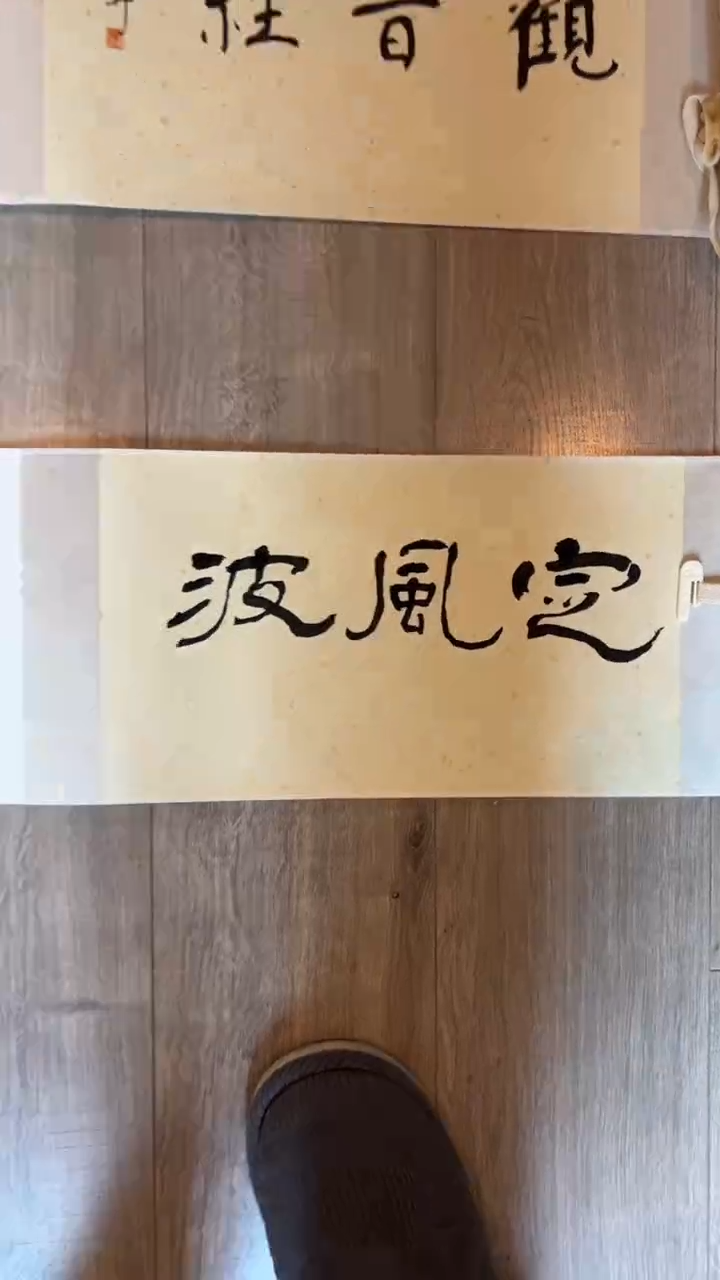 觀音
定風波